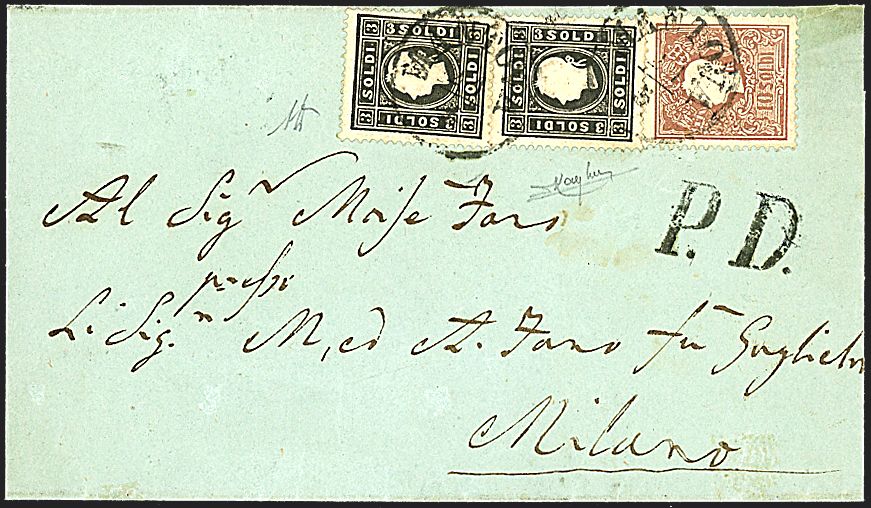 3 SOLDI SOLDI 3 SOLDI SOLDI
3 SOLDI SOLDI 3 SOLDI SOLDI
10 SOLDI
P. D.
Al Sigr Moise Fano
presso
Li Sig.n M, ed A. Fano fu Guglielm
Milano